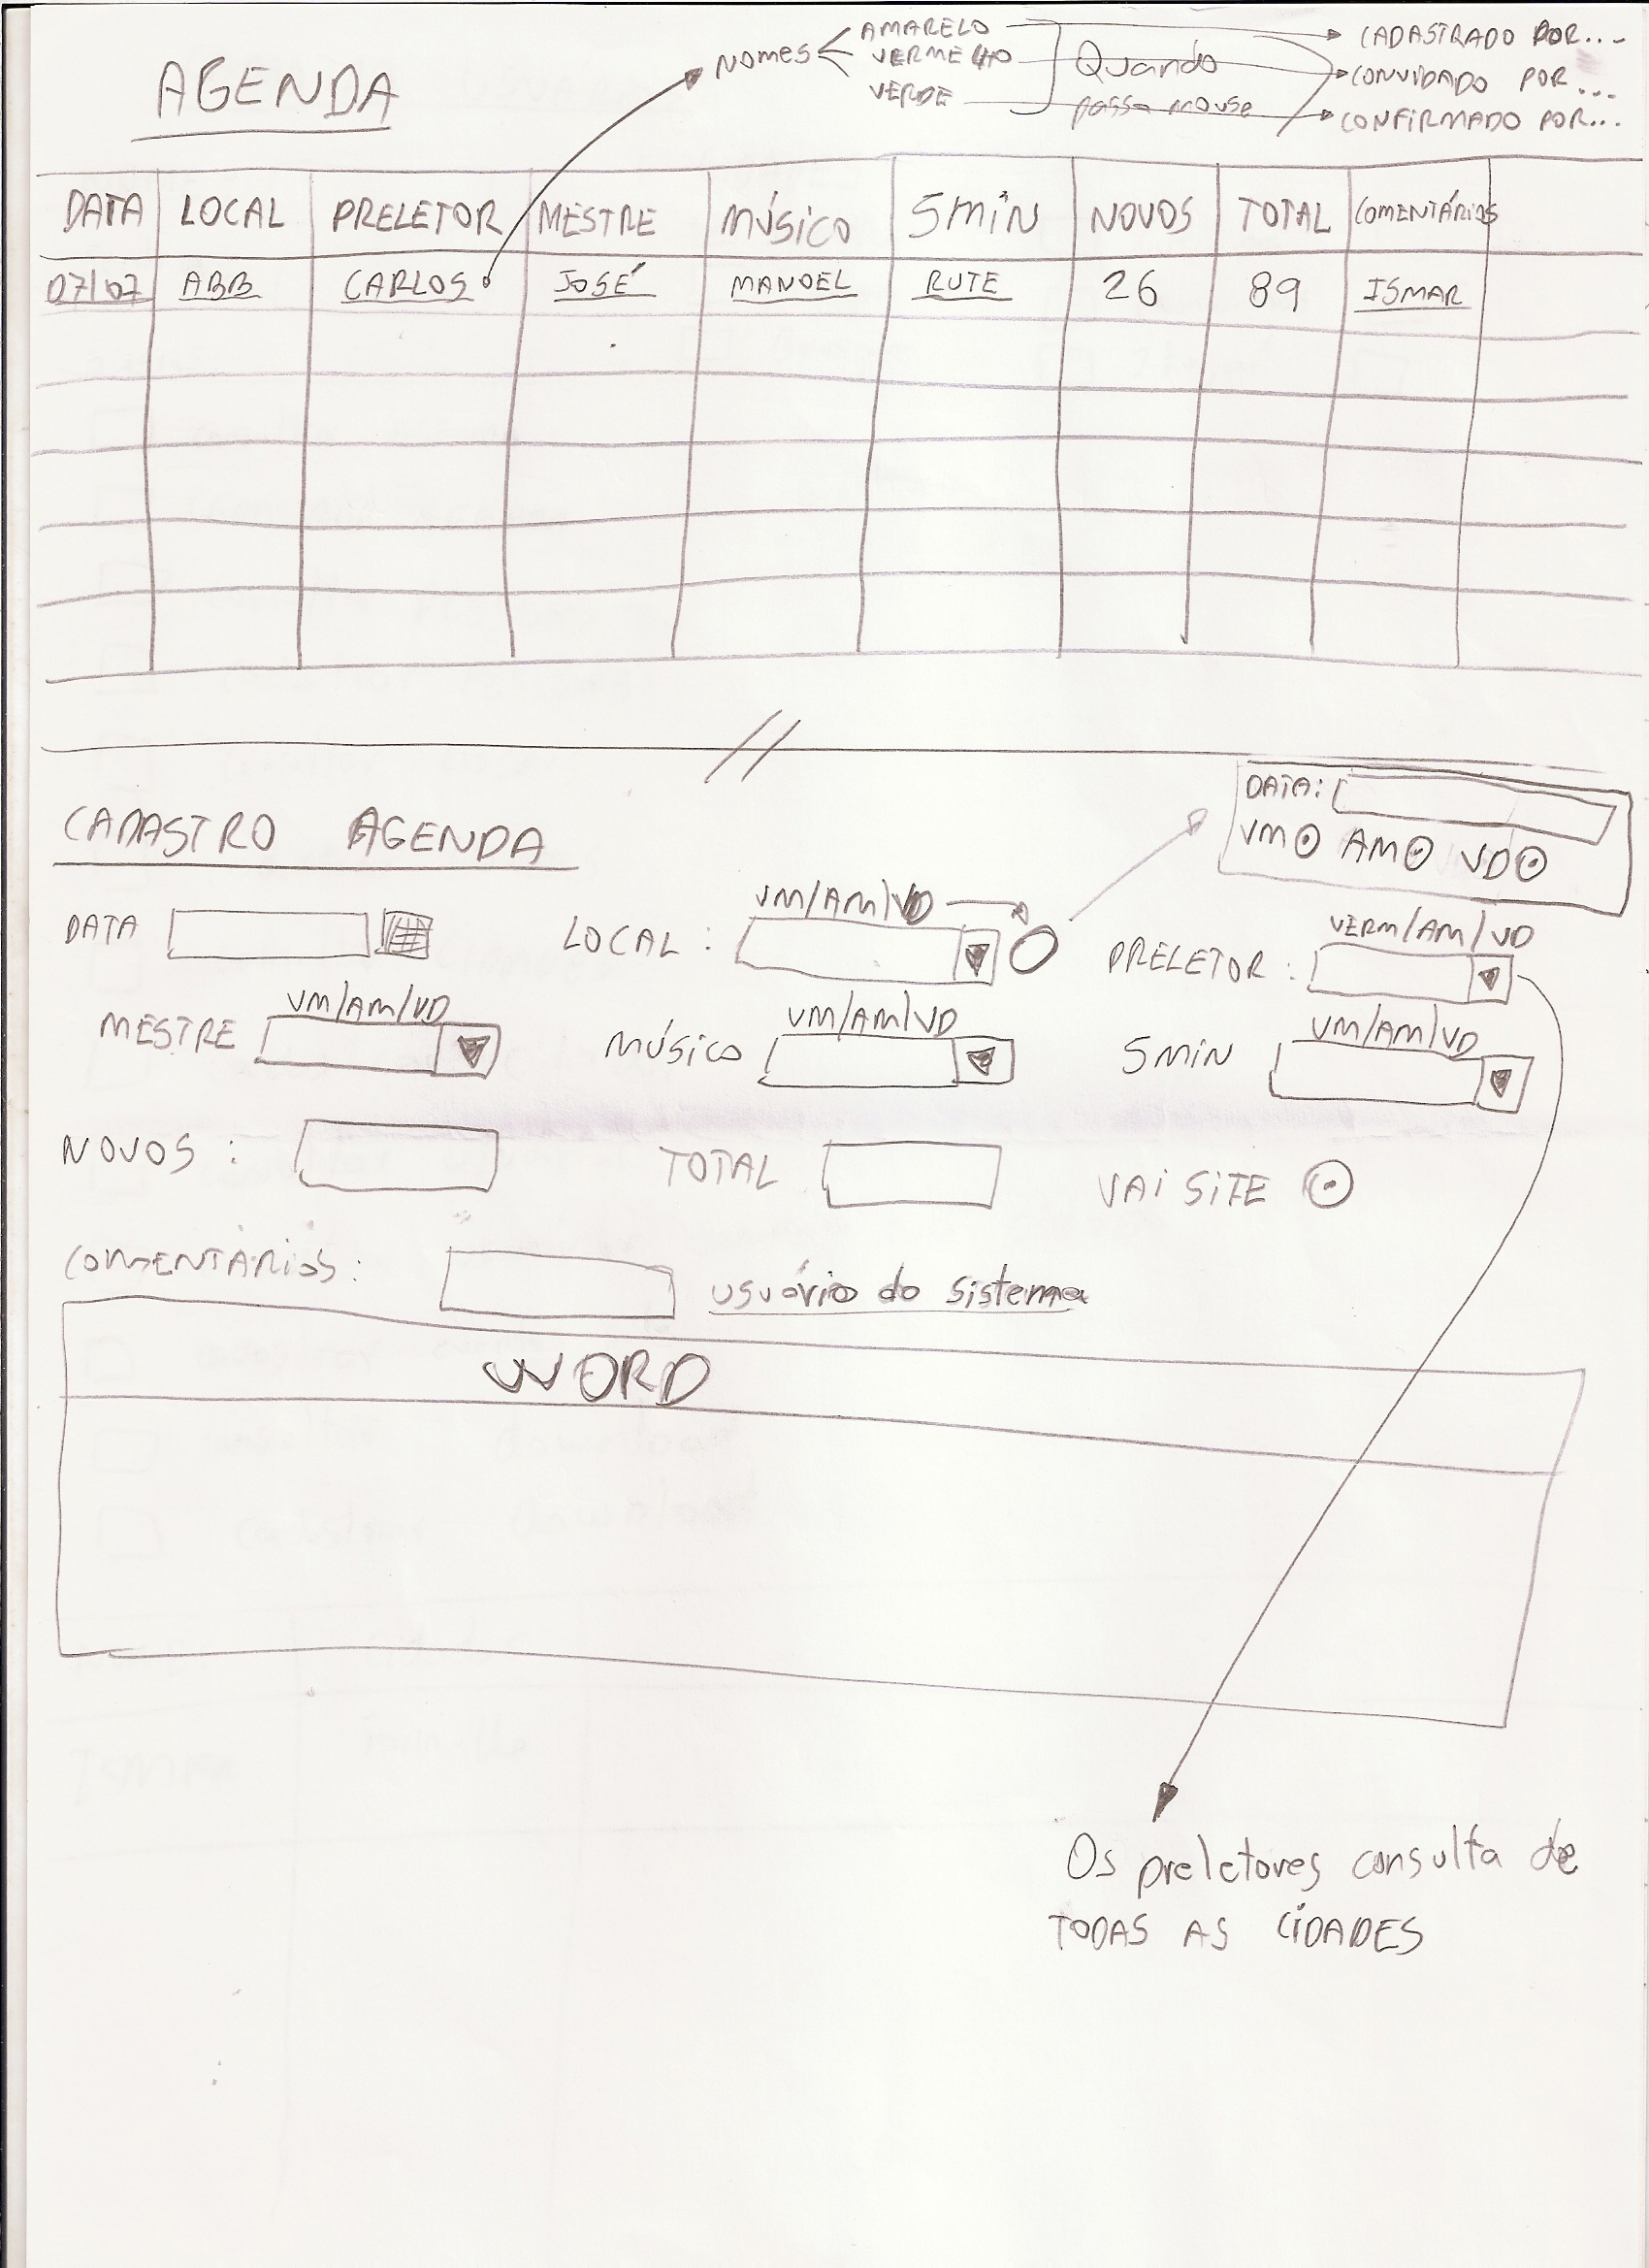 AGENDA
NOMES
AMARELO
VERMELHO
VERDE
Quando
passa mouse
CADASTRADO POR...
CONVIDADO POR...
CONFIRMADO POR...
DATA LOCAL PRELETOR MESTRE MÚSICO 5MIN NOVOS TOTAL COMENTÁRIOS
07/07 ABB CARLOS JOSÉ MANOEL RUTE 26 89 ISMAR
CADASTRO AGENDA
DATA:
VM AM VD
DATA
LOCAL : VM/AM/VD
PRELETOR : VERM/AM/VD
MESTRE VM/AM/VD
MÚSICO VM/AM/VD
5MIN VM/AM/VD
NOVOS :
TOTAL
VAI SITE
COMENTÁRIOS:
usuário do sistema
WORD
Os preletores consulta de
TODAS AS CIDADES